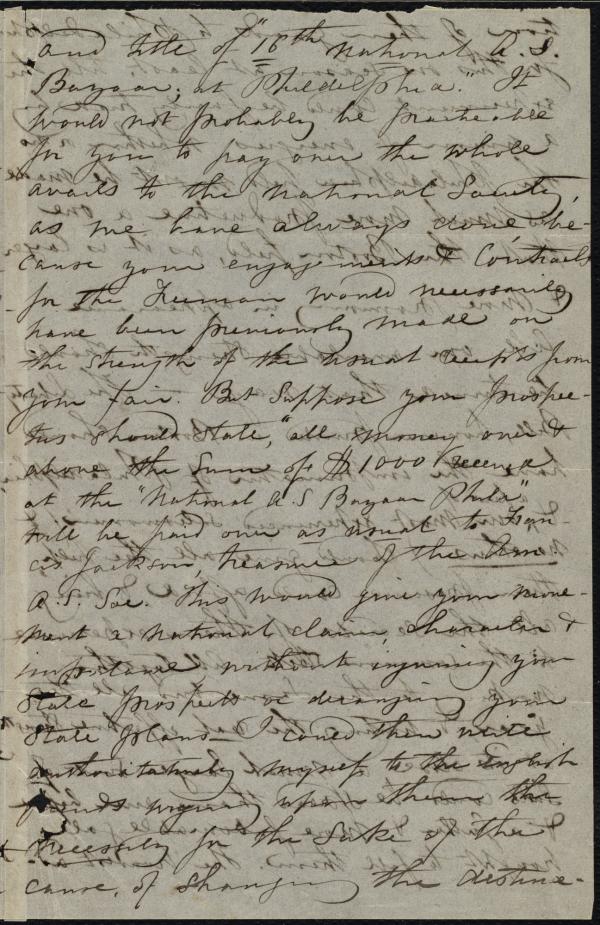 and title of "16th National A. S.
Bazaar, at Phildelphia." It
would not probably be practicable
for you to pay over the whole
avails to the National Society,
as we have always done, be-
cause your engagements & Contracts
for the Freeman would necessarily
have been previously made on
the strength of the usual receipts from
your fair. But suppose your prospec-
tus should state, "all money over &
above the Sum of $1000 received
at the "National A. S Bazaar Phila"
will be paid over as usual to Fran-
cis Jackson, treasurer of the Am.
A. S. Soc. This would give your move-
ment a National claim, character &
importance without injuring your
State prospects or deranging your
State plans— I could then write
authoritatively myself to the English
friends urging upon them the
necessity for the Sake of the
cause, of changing the destina-